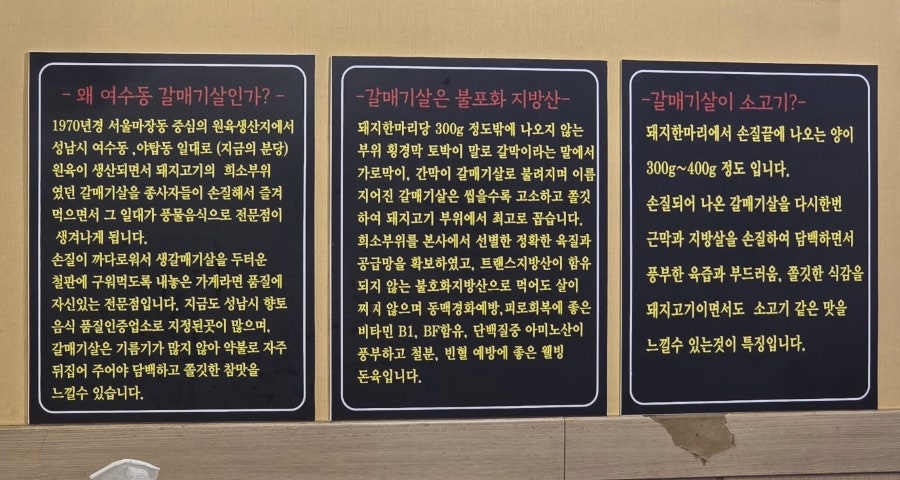 - 왜 여수동 갈매기살인가? -
1970년경 서울마장동 중심의 원육생산지에서
성남시 여수동 ,야탑동 일대로 (지금의 분당)
원육이 생산되면서 돼지고기의 희소부위
였던 갈매기살을 종사자들이 손질해서 즐겨
먹으면서 그 일대가 풍물음식으로 전문점이
생겨나게 됩니다.
손질이 까다로워서 생갈매기살을 두터운
철판에 구워먹도록 내놓은 가게라면 품질에
자신있는 전문점입니다. 지금도 성남시 향토
음식 품질인증업소로 지정된곳이 많으며,
갈매기살은 기름기가 많지 않아 약불로 자주
뒤집어 주어야 담백하고 쫄깃한 참맛을
느낄수 있습니다.
-갈매기살은 불포화 지방산-
돼지한마리당 300g 정도밖에 나오지 않는
부위 횡경막 토박이 말로 갈막이라는 말에서
가로막이, 간막이 갈매기살로 불려지며 이름
지어진 갈매기살은 씹을수록 고소하고 쫄깃
하여 돼지고기 부위에서 최고로 꼽습니다.
희소부위를 본사에서 선별한 정확한 육질과
공급망을 확보하였고, 트랜스지방산이 함유
되지 않는 불호화지방산으로 먹어도 살이
찌지 않으며 동맥경화예방,피로회복에 좋은
비타민 B1, BF함유, 단백질중 아미노산이
풍부하고 철분, 빈혈 예방에 좋은 웰빙
돈육입니다.
-갈매기살이 소고기?-
돼지한마리에서 손질끝에 나오는 양이
300g~400g 정도 입니다.
손질되어 나온 갈매기살을 다시한번
근막과 지방살을 손질하여 담백하면서
풍부한 육즙과 부드러움, 쫄깃한 식감을
돼지고기이면서도 소고기 같은 맛을
느낄수 있는것이 특징입니다.